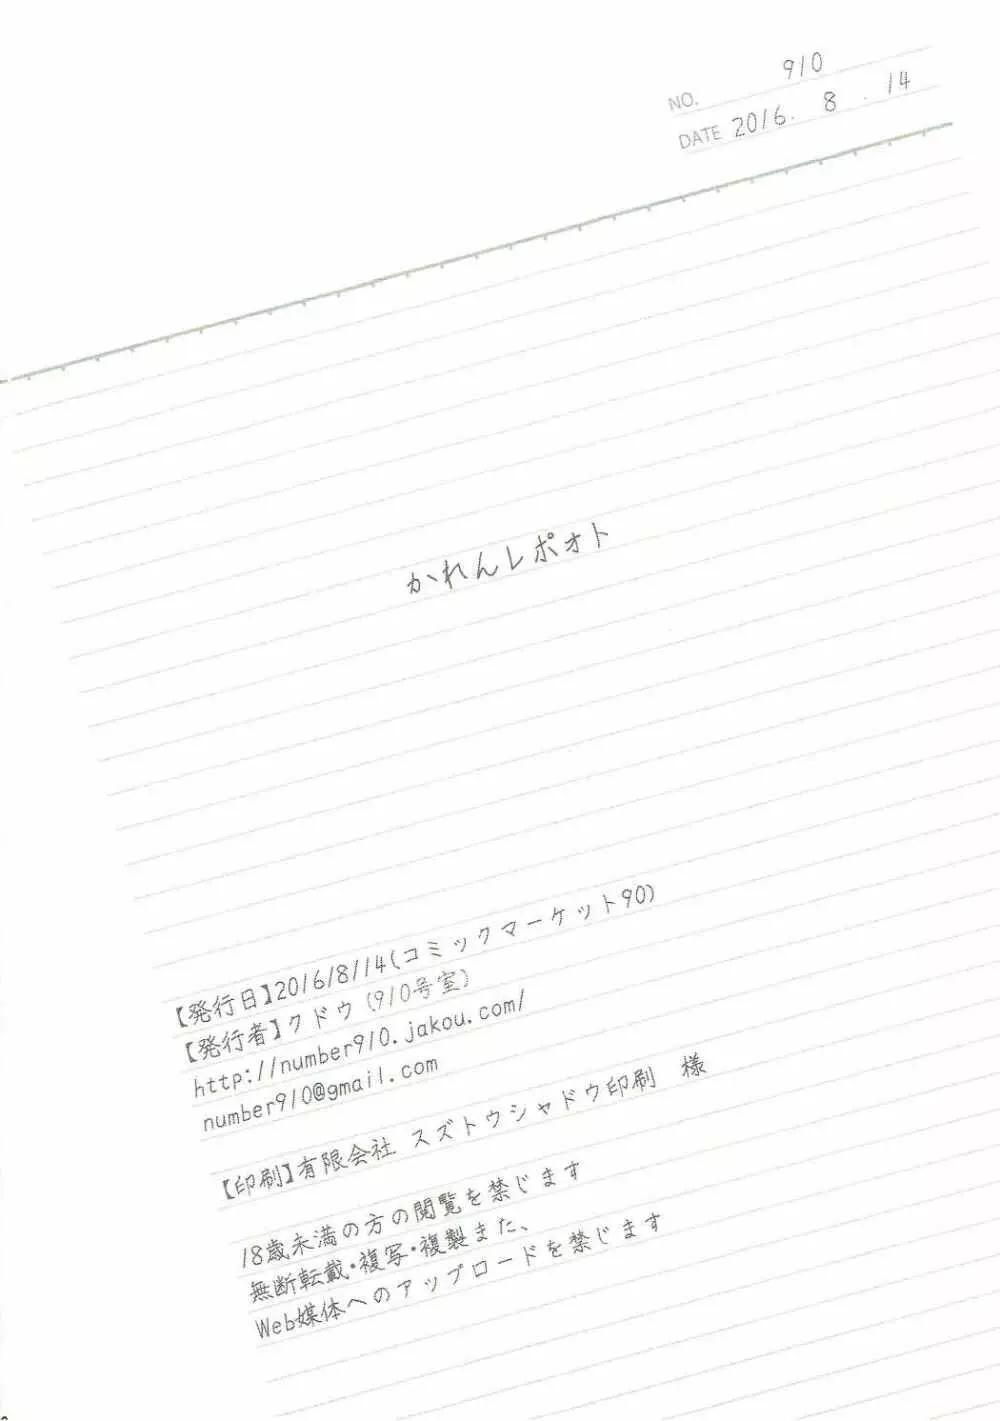 NO. 910
DATE 2016. 8 . 14
かれんレポォト
【発行日】2016/8/14(コミックマーケット90)
【発行者】クドウ(910号室)
http://number910.jakou.com/
number910@gmail.com
【印刷】有限会社 スズトウシャドウ印刷 様
18歳未満の方の閲覧を禁じます
無断転載・複写・複製また、
Web媒体へのアップロードを禁じます